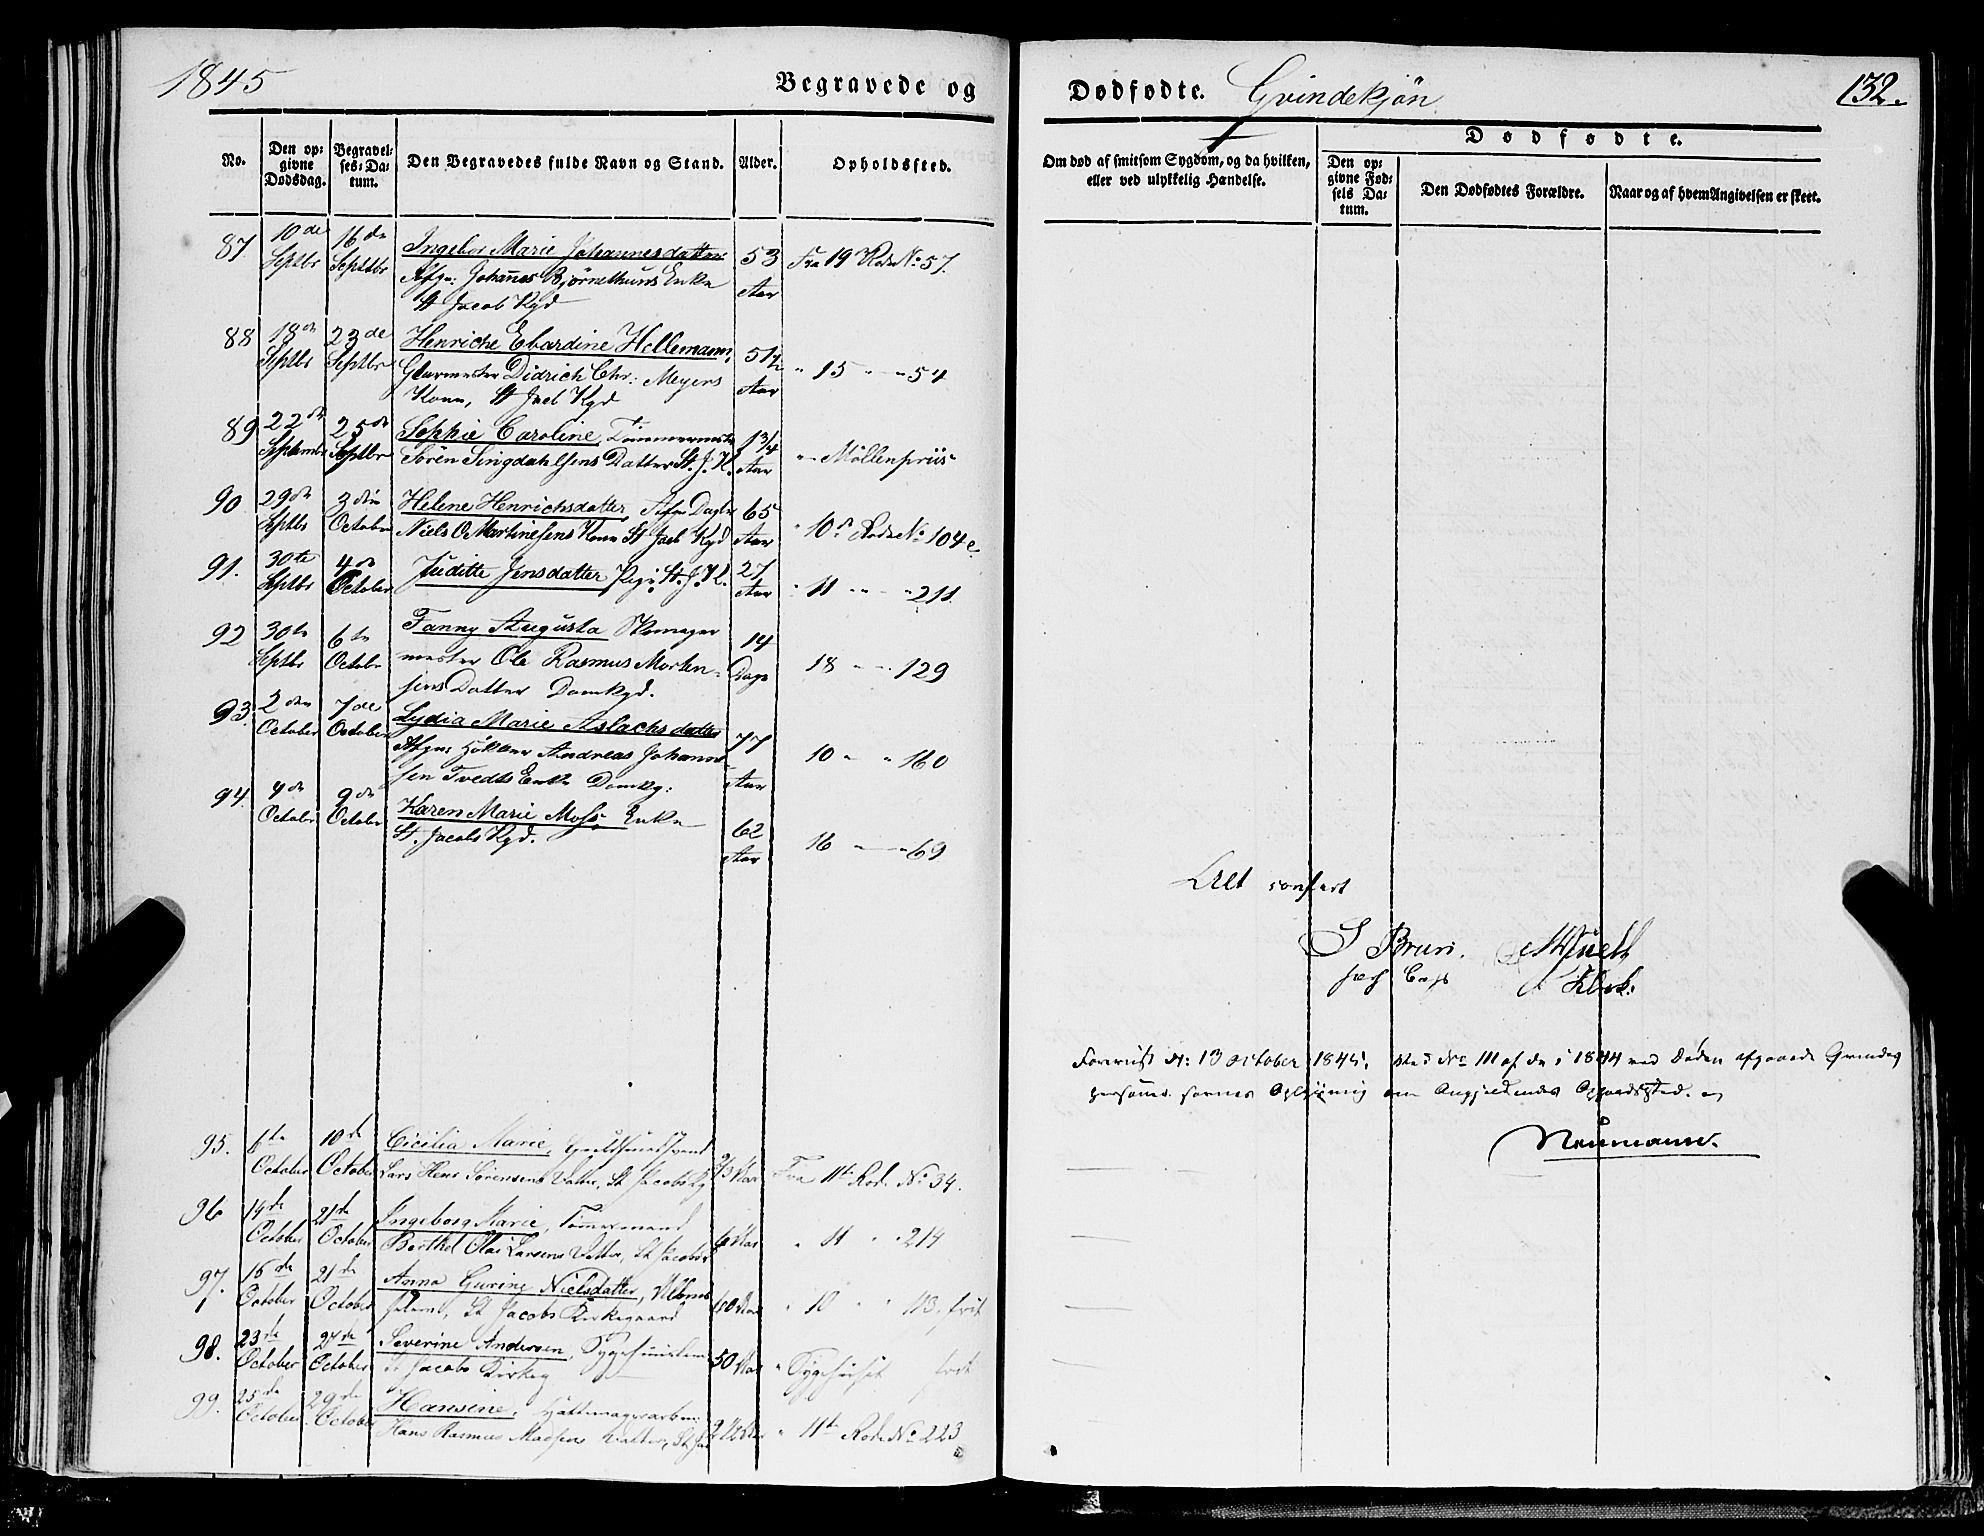 1845
Begravede og
No.
Den op-
givne
Dødsdag.
Begravel-
ses-Da-
tum.
Den Begravedes fulde Navn og Stand.
Alder.
Opholdssted.
87
10de
Septbr
16de
Septbr
Ingebor Marie Johannesdatter
Afgn: Johannes Bjørnethuns Enke
St Jacob Kgd
53
Aar
Fra 19 Rode No 57.
88
18de
Septbr
23de
Septbr
Henriche Ebardine Hellemann,
Glarmester Didrich Chr: Meyers
Kone, St Jacb Kgd
51½
Aar
" 15 " " 54
89
22de
September
25de
Septbr
Sophie Caroline, Tømmermester
Søren Singdahlsens Datter St. J. K.
1¾
Aar
" Møllenpriis
90
29de
Septbr
3die
October
Helene Henrichsdatter, Afgn
Niels O Martinesens Kone St Jacb Kgd
65
Aar
" 10de Rode No 104c.
91.
30te
Septbr
4de
October
Juditte Jensdatter Pige St. J. K.
27
Aar
" 11 " " 211
92
30te
Septbr
6te
Octobr
Fanny Augusta Skomager
mester Ole Rasmus Morten-
sens Datter Domkgd.
14
Dage
18 " " 129
93.
2den
October
7de
October
Lydia Marie Aslachsdatter
Afgn: Høkker Andreas Johann-
sen Tvedts Enke Domkg:
77
Aar
10 " " 160
94.
4de
October
9de
October
Karen Marie Moss, Enke
St. Jacobs Kgd.
62
Aar
16 " " 69
95.
6te
October
10de
October
Cicilia Marie, Guldsmedsvend
Lars Henr Sørensens Datter, St Jacobs Kg
2/3 Aar
Fra 11te Rode No 34.
96
14de
October
21de
October
Ingeborg Marie, Tømmermand
Berthel Olai Larsens Datter, St Jacobs K
6 Aar
" 11 " 214
97.
16de
October
21de
October
Anna Gurine Nielsdatter,
St Jacobs Kirkegaard
60 Aar
" 10 " 113. frit
98.
23de
October
27de
October
Severine Andersen,
St Jacobs Kirkeg
50 Aar
" Sygehuset frit
99.
25de
October
29de
October
Hansine, Hattemagerarbm:
Hans Rasmus Madsens Datter, St Jac
2½ Aar
" 11te Rode No 223
Dødfødte.
Qvindekjøn
132.
Om død af smitsom Sygdom, og da hvilken,
eller ved ulykkelig Hændelse.
Dødfødte.
Den op-
givne Fød-
sels Da-
tum.
Den Dødfødtes Forældre.
Naar og af hvem Angivelsen er skeet.
confert
J Bruun.
Klok:
Foreviist d: 13 October 1845, No 111 af de i 1844 ved Døden afgaaede Qvindes
personer savnes Oplysning om Angjeldendes Opholdssted.
Neumann.